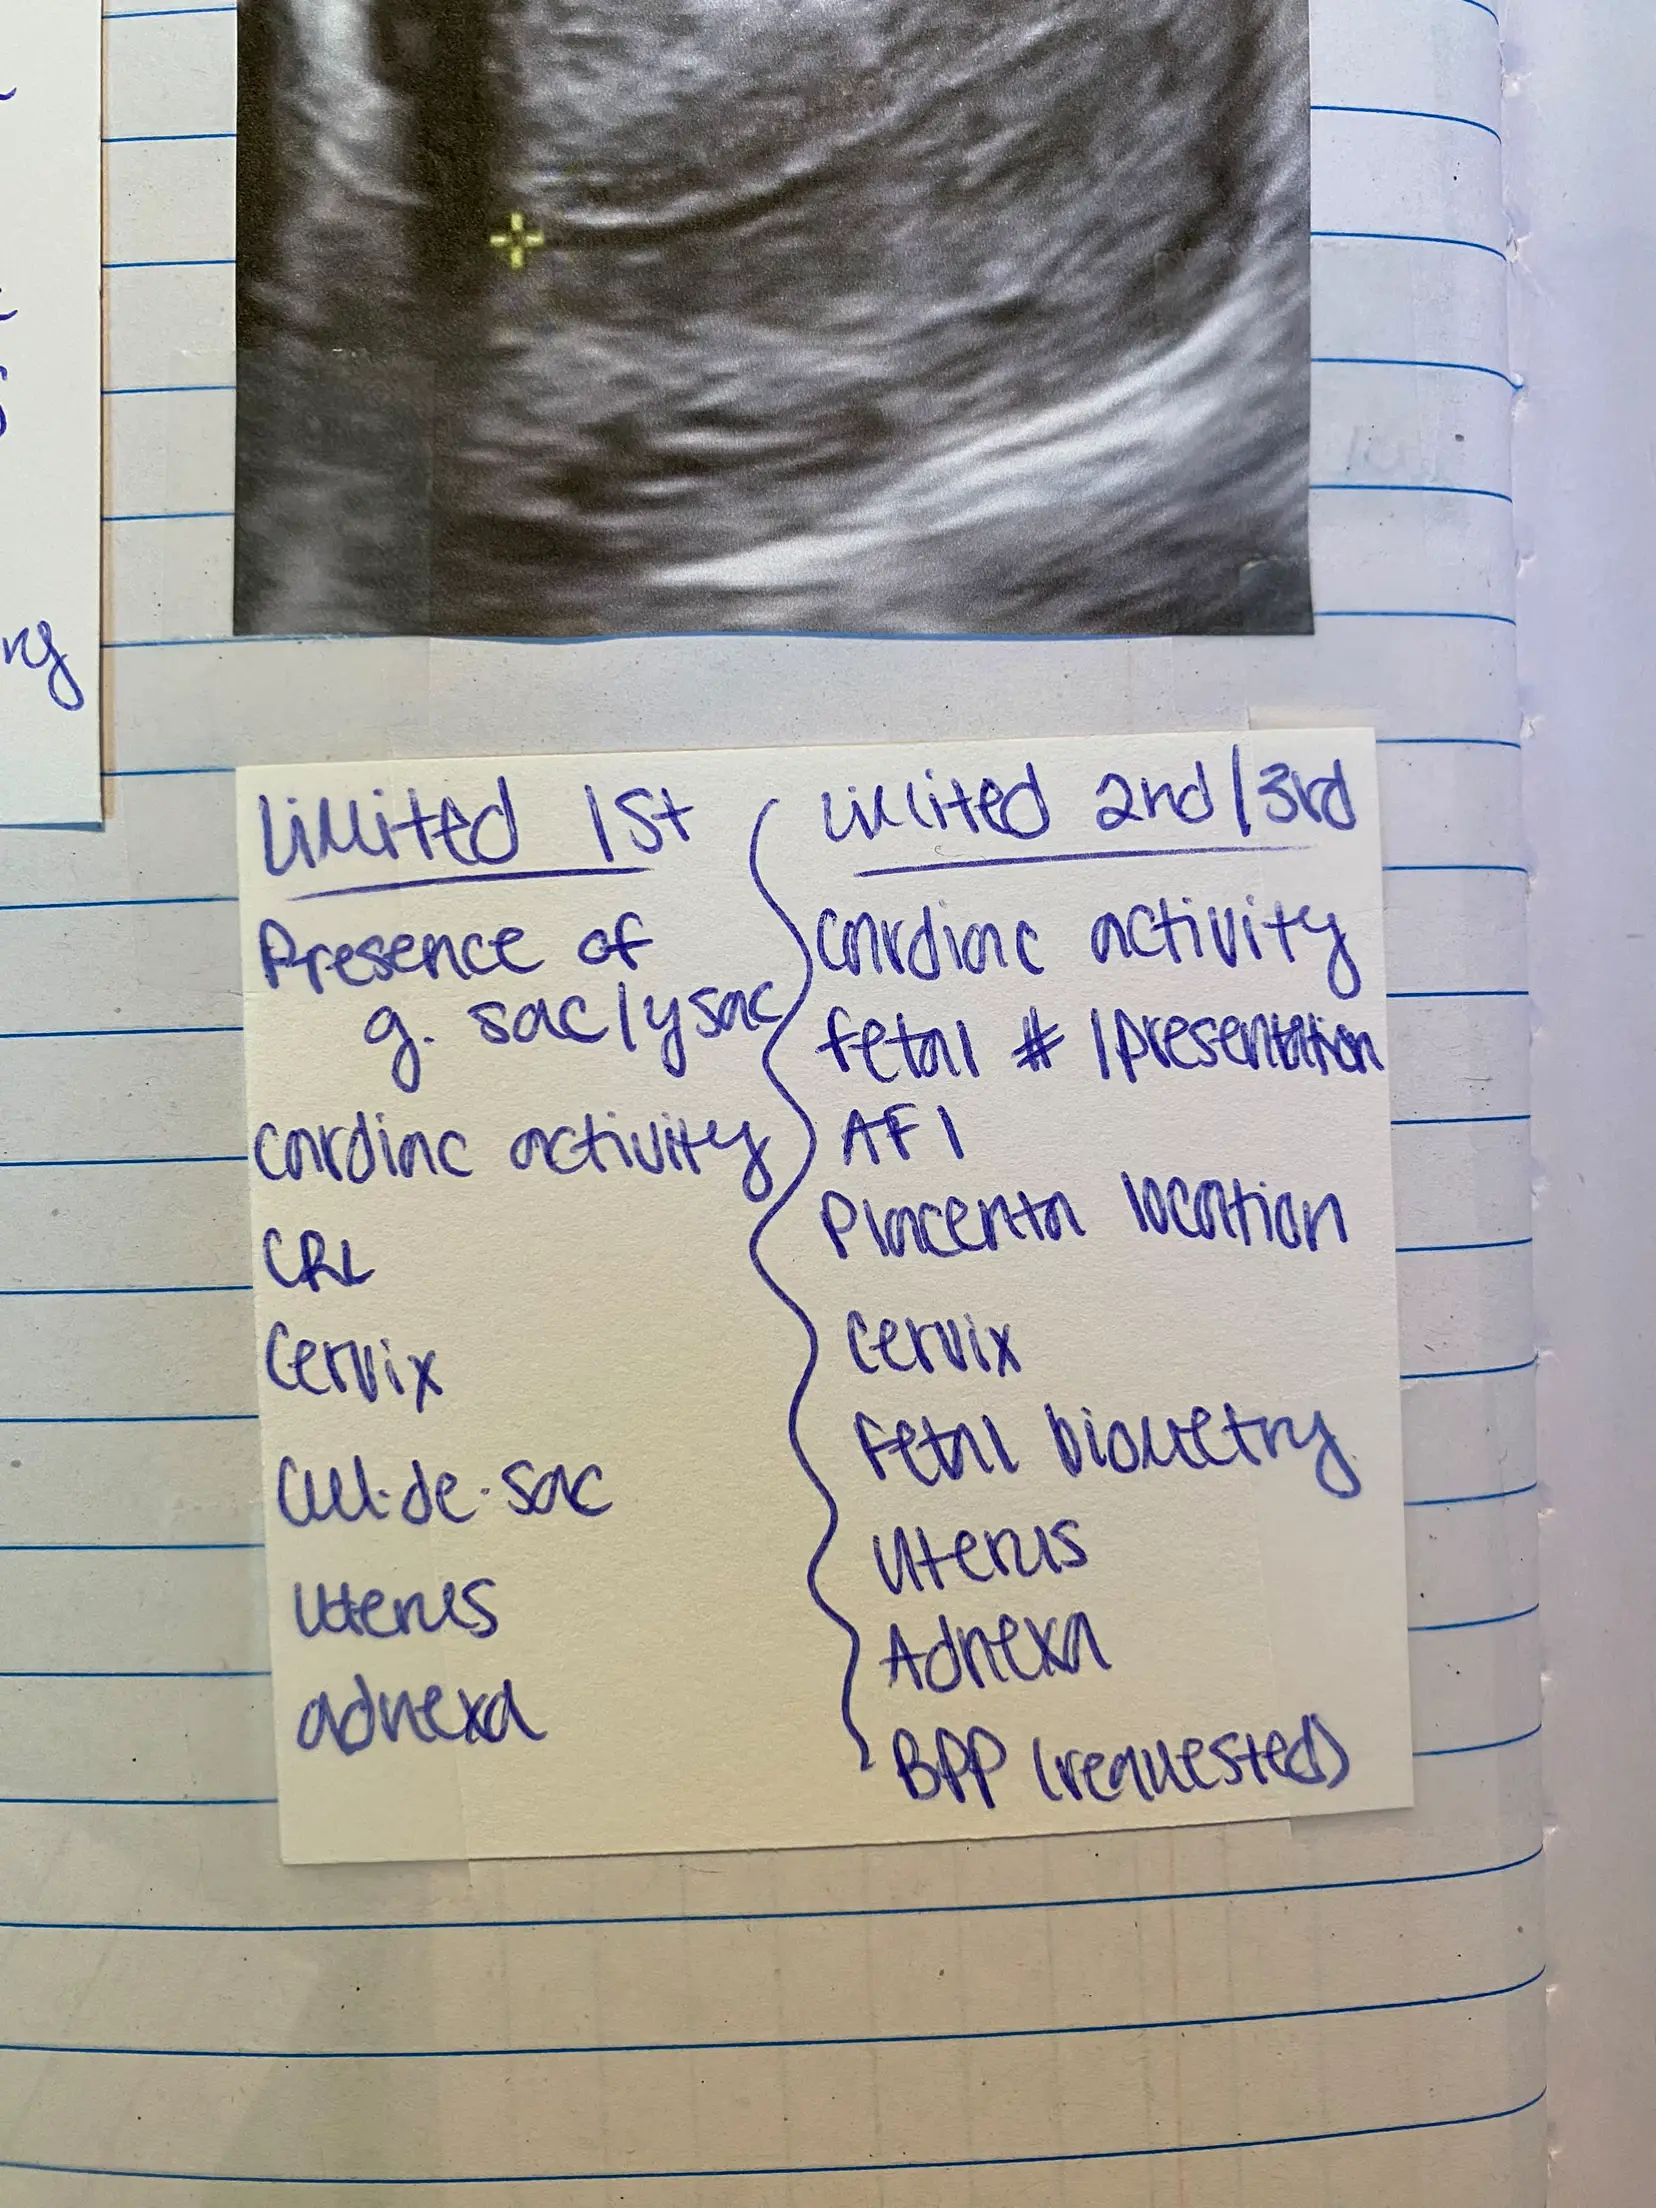 ry
Limited 1st
Presence of
g. sac/ysac
cardiac activity
CRL
Cervix
Cul-de-sac
Uterus
adnexa
Limited 2nd/3rd
cardiac activity
fetal # /presentation
AFI
Placenta location
Cervix
Fetal biometry
Uterus
Adnexa
BPP (requested)